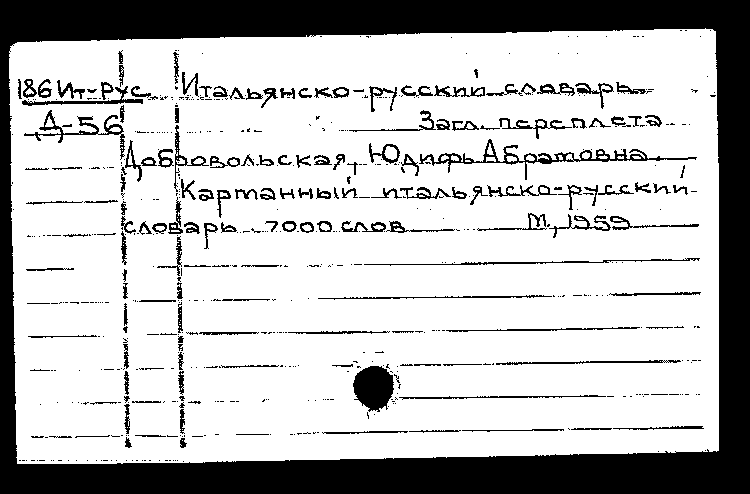 186 Ит-рус Итальянско-русский словарь
Д-56 Загл. переплета
Добровольская, Юдифь Абрамовна.
Карманный итальянско-русский
словарь. 7000 слов М, 1959